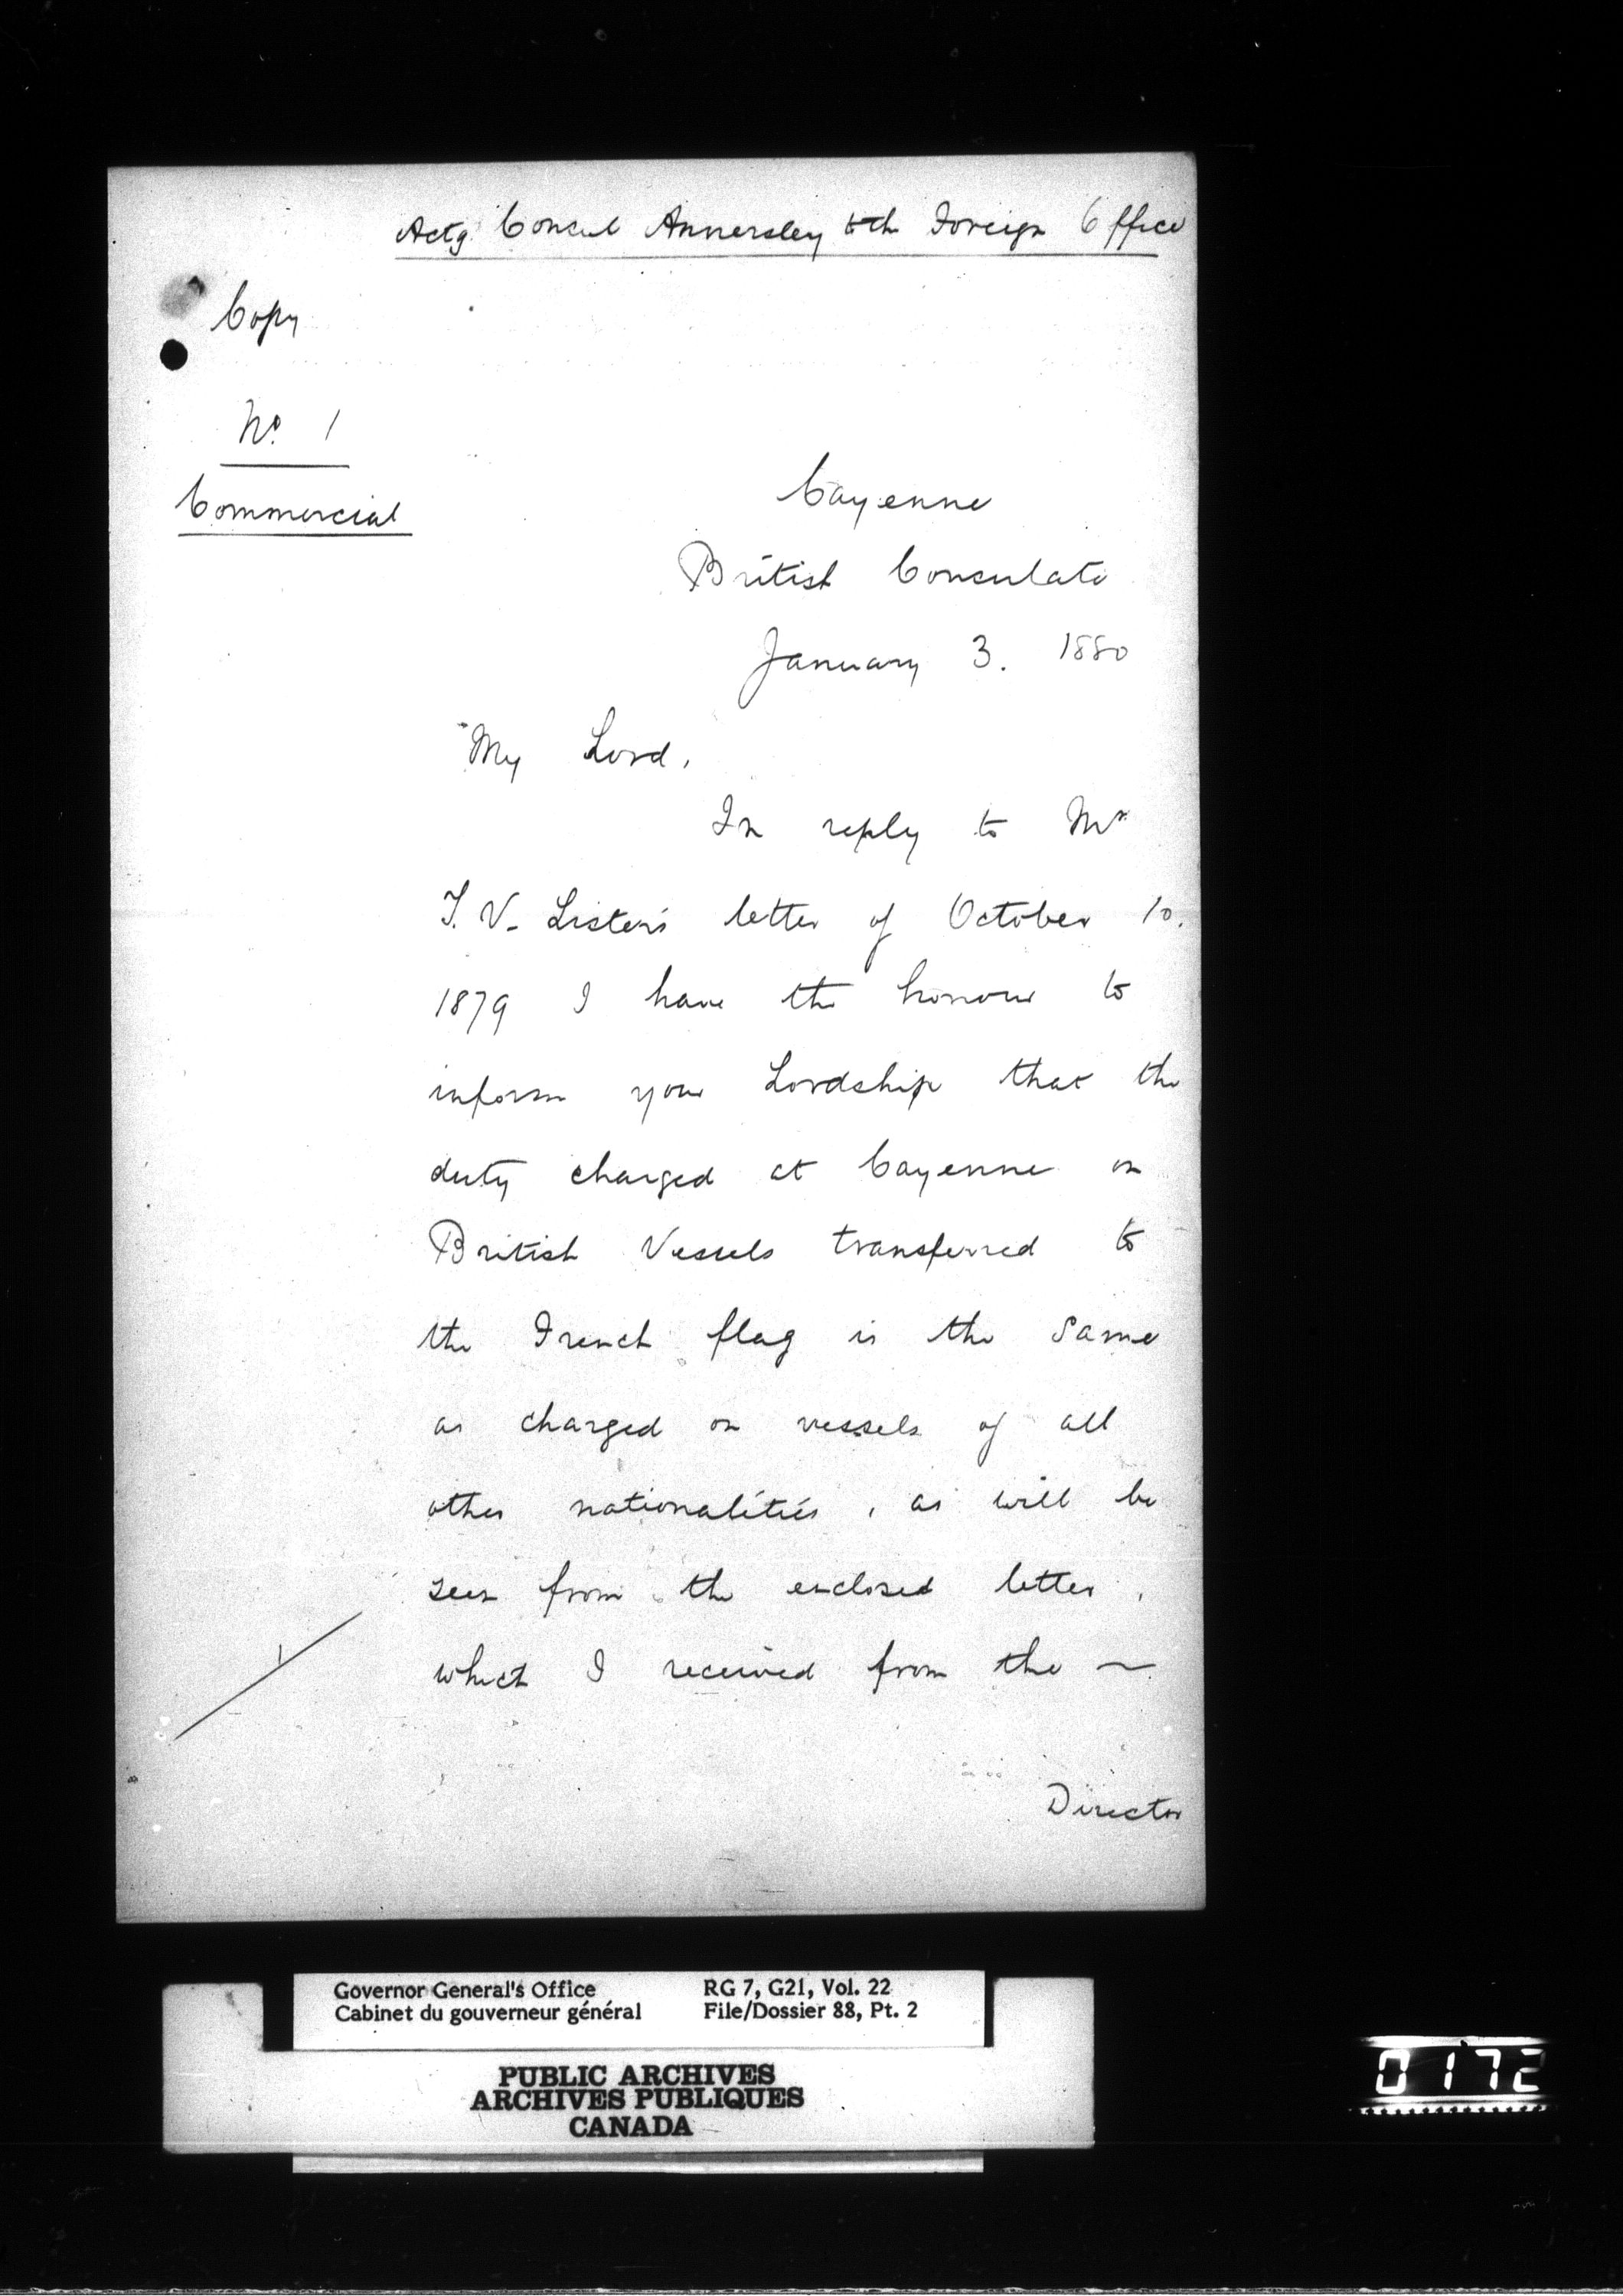 Actg. Consul Annersley to the Foreign Office
Copy
No. 1
Commercial
Cayenne
British Consulate
January 3. 1880
My Lord,
In reply to Mr.
T. V. Lister's letter of October 10.
1879 I have the honour to
inform your Lordship that the
duty charged at Cayenne on
British Vessels transferred to
the French flag is the same
as charged on vessels of all
other nationalities, as will be
seen from the enclosed letter,
which I received from the ~
1
Director
Governor General's Office RG 7, G21, Vol. 22
Cabinet du gouverneur général File/Dossier 88, Pt. 2
PUBLIC ARCHIVES
ARCHIVES PUBLIQUES
CANADA
0172